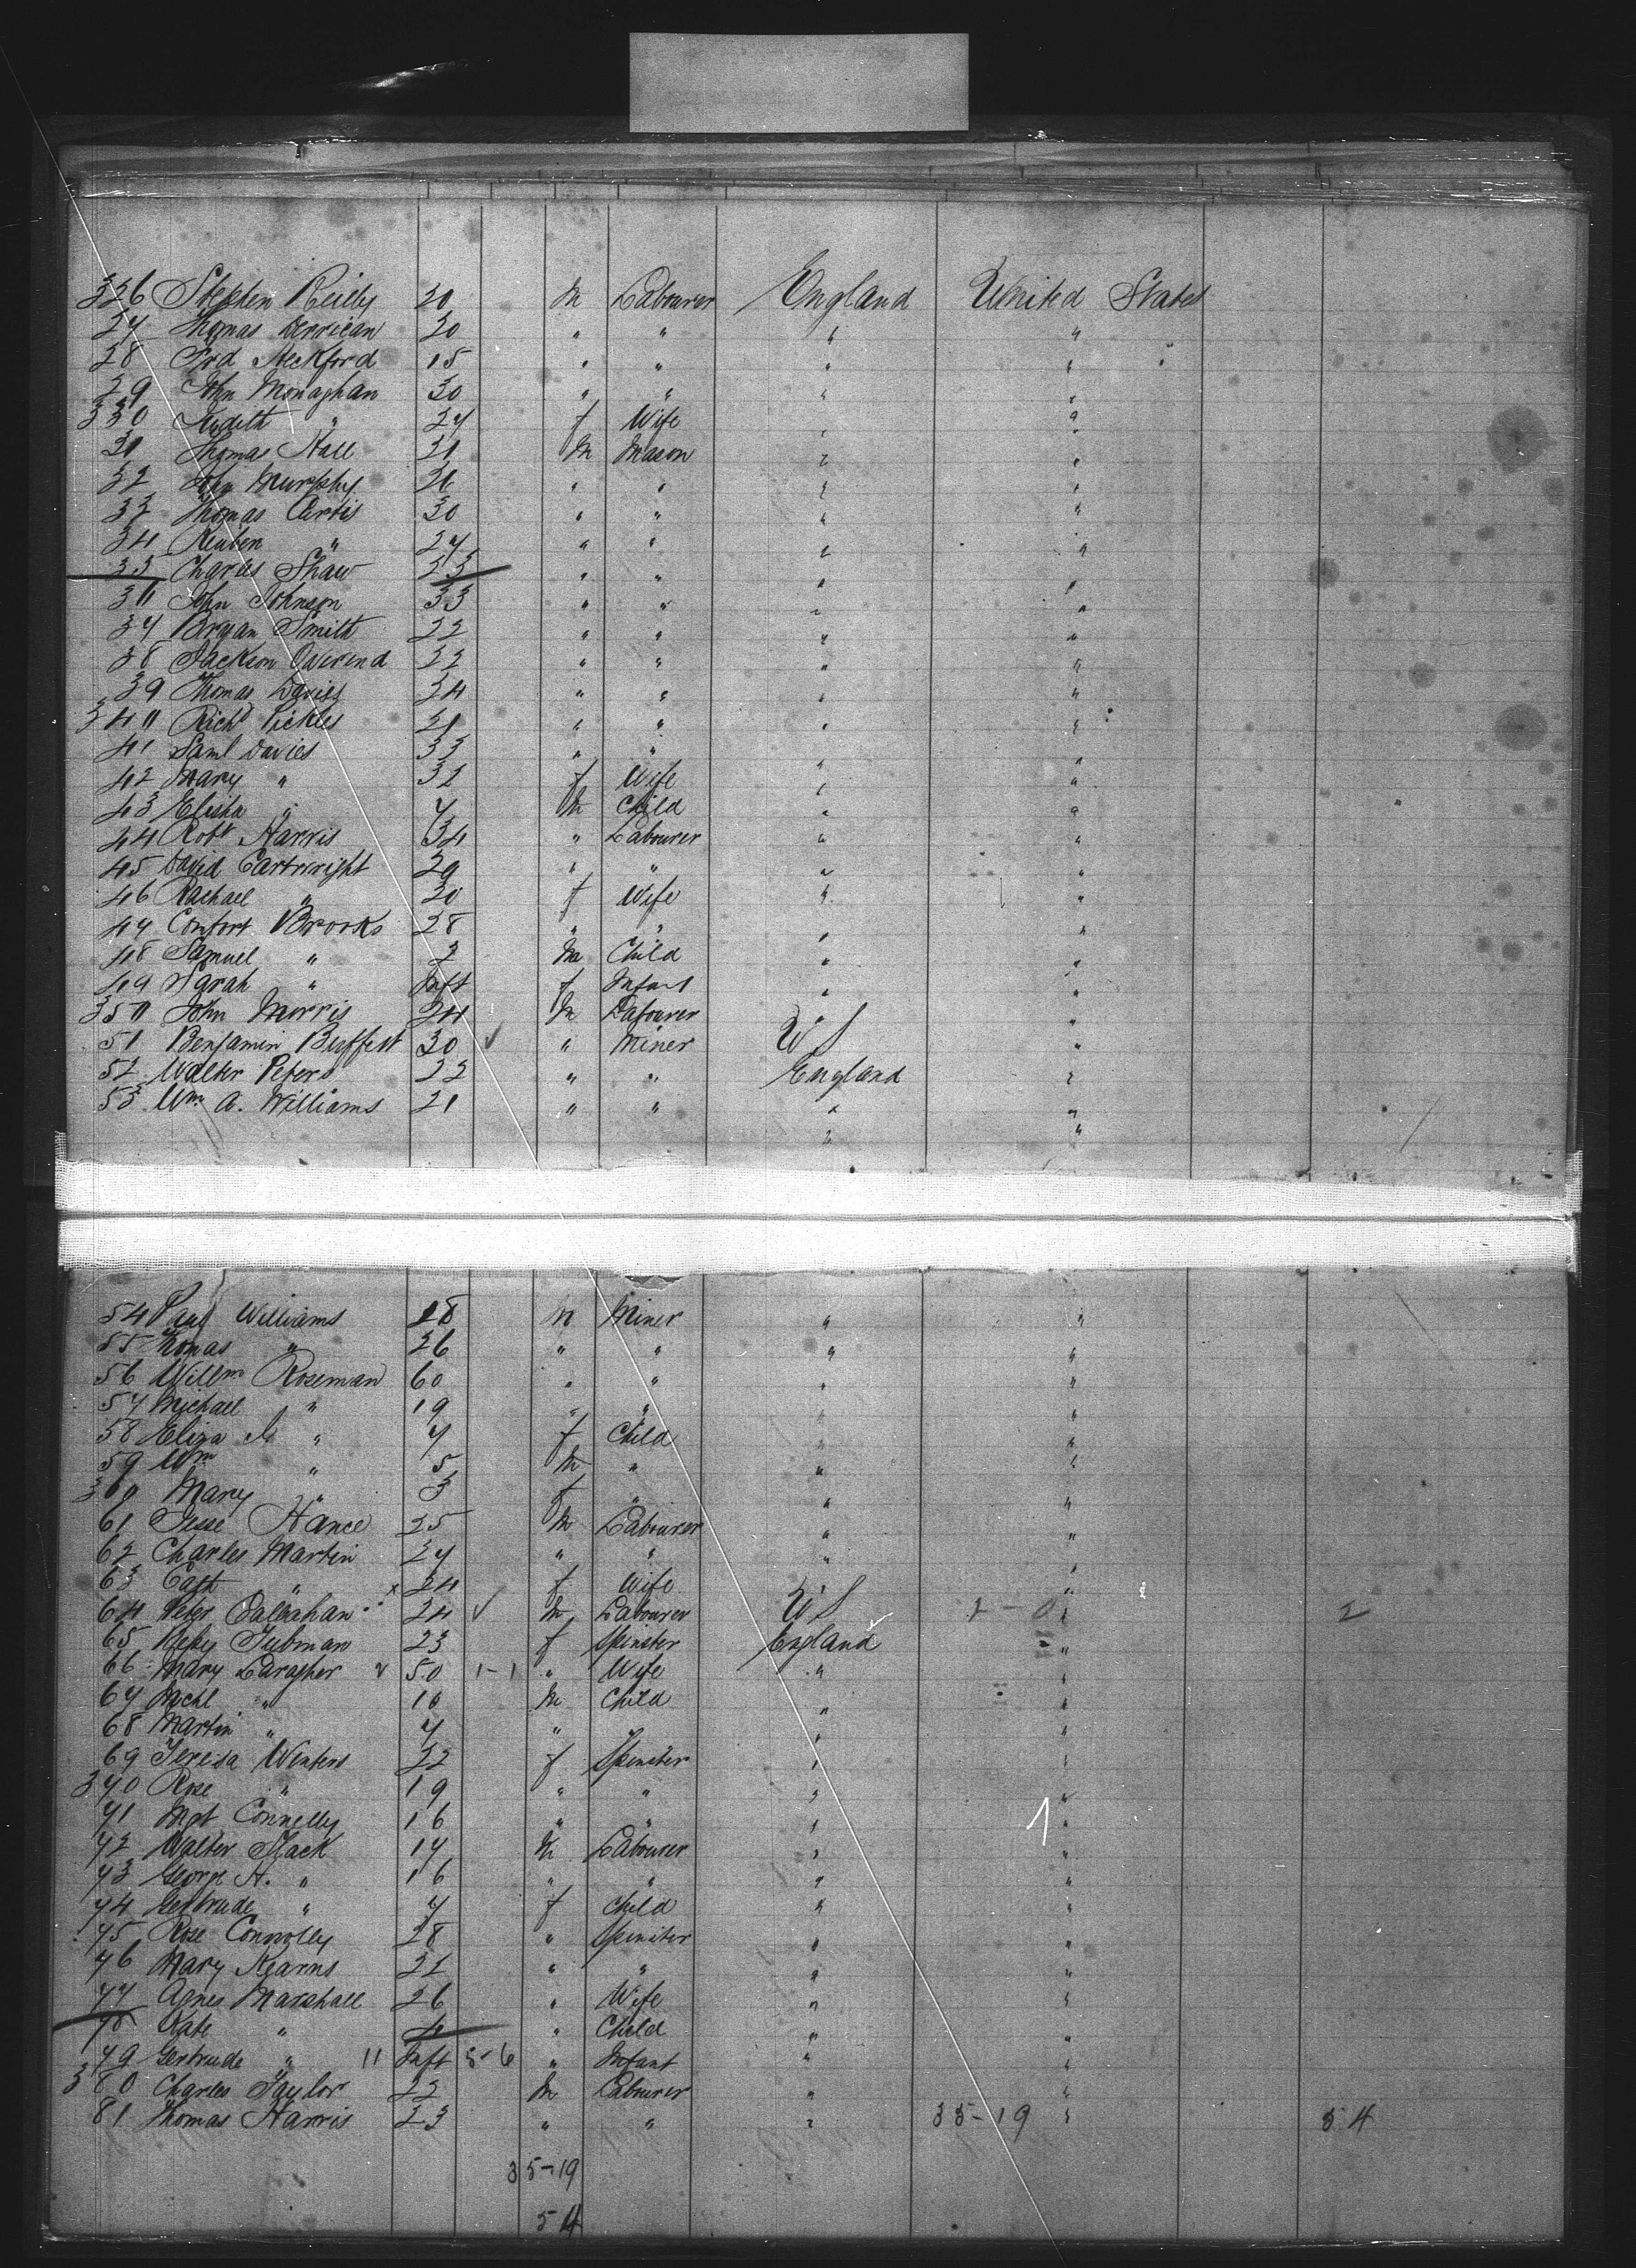 326 Stephen Reilly 20 m Labourer England United States
27 Thomas Derrican 20 " " " "
28 Frd Steckford 15 " " " "
29 John Monaghan 30 " " " "
330 " 27 f Wife " "
31 Thomas Hall 21 m Mason " "
32 John Murphy 26 " " " "
33 Thomas Curtis 30 " " " "
34 Reuben " 27 " " " "
35 Charles Shaw 23 " " " "
36 John Johnson 33 " " " "
37 Bryan Smith 22 " " " "
38 Jackson Overend 22 " " " "
39 Thomas Davies 34 " " " "
340 Richd Pickles 21 " " " "
41 Saml Davies 33 " " " "
42 Mary " 32 f Wife " "
43 Elisha " 7 m Child " "
44 Robt Harris 34 " Labourer " "
45 David Cartwright 29 " " " "
46 Rachael " 20 f Wife " "
47 Confort Brooks 28 " " " "
48 Samuel " 2 m Child " "
49 Sarah " Inft f Infant " "
350 John Morris 24 m Labourer " "
51 Benjamin 30 ✓ " Miner U S "
52 Walter Peters 22 " " England "
53 Wm A. Williams 21 " " " "
" "
54 Paul Williams 28 m Miner " "
55 Thomas " 26 " " " "
56 Willm Roseman 60 " " " "
57 Michael " 19 " " " "
58 Eliza " 7 f Child " "
59 Wm " 5 m " " "
360 Mary " 3 f " " "
61 Jesse Hance 25 m Labourer " "
62 Charles Martin 27 " " " "
63 Cath " x 24 f Wife " "
64 Peter Callaghan 24 ✓ m Labourer U S 2-0 " 2
65 Tubman 23 f Spinster England "
66 Mary Caragher v 50 1-1 " Wife " "
67 Michl " 10 m Child " "
68 Martin " 7 " " " "
69 Teresa Winters 22 f Spinster " "
370 Rose " 19 " " " "
71 Mgt Connelly 16 " " " "
72 Walter Mack 17 m Labourer " "
73 George H. " 16 " " " "
74 Gertrude " 7 f Child " "
75 Rose Connolly 28 " Spinster " "
76 Mary Kearns 21 " " " "
77 Agnes Marshall 26 " Wife " "
78 Kate " 4 " Child " "
79 Gertrude " 11 Inft 5-6 " Infant " "
380 Charles Taylor 22 m Labourer " "
81 Thomas Harris 23 " " " 35-19 " 54
35-19
54